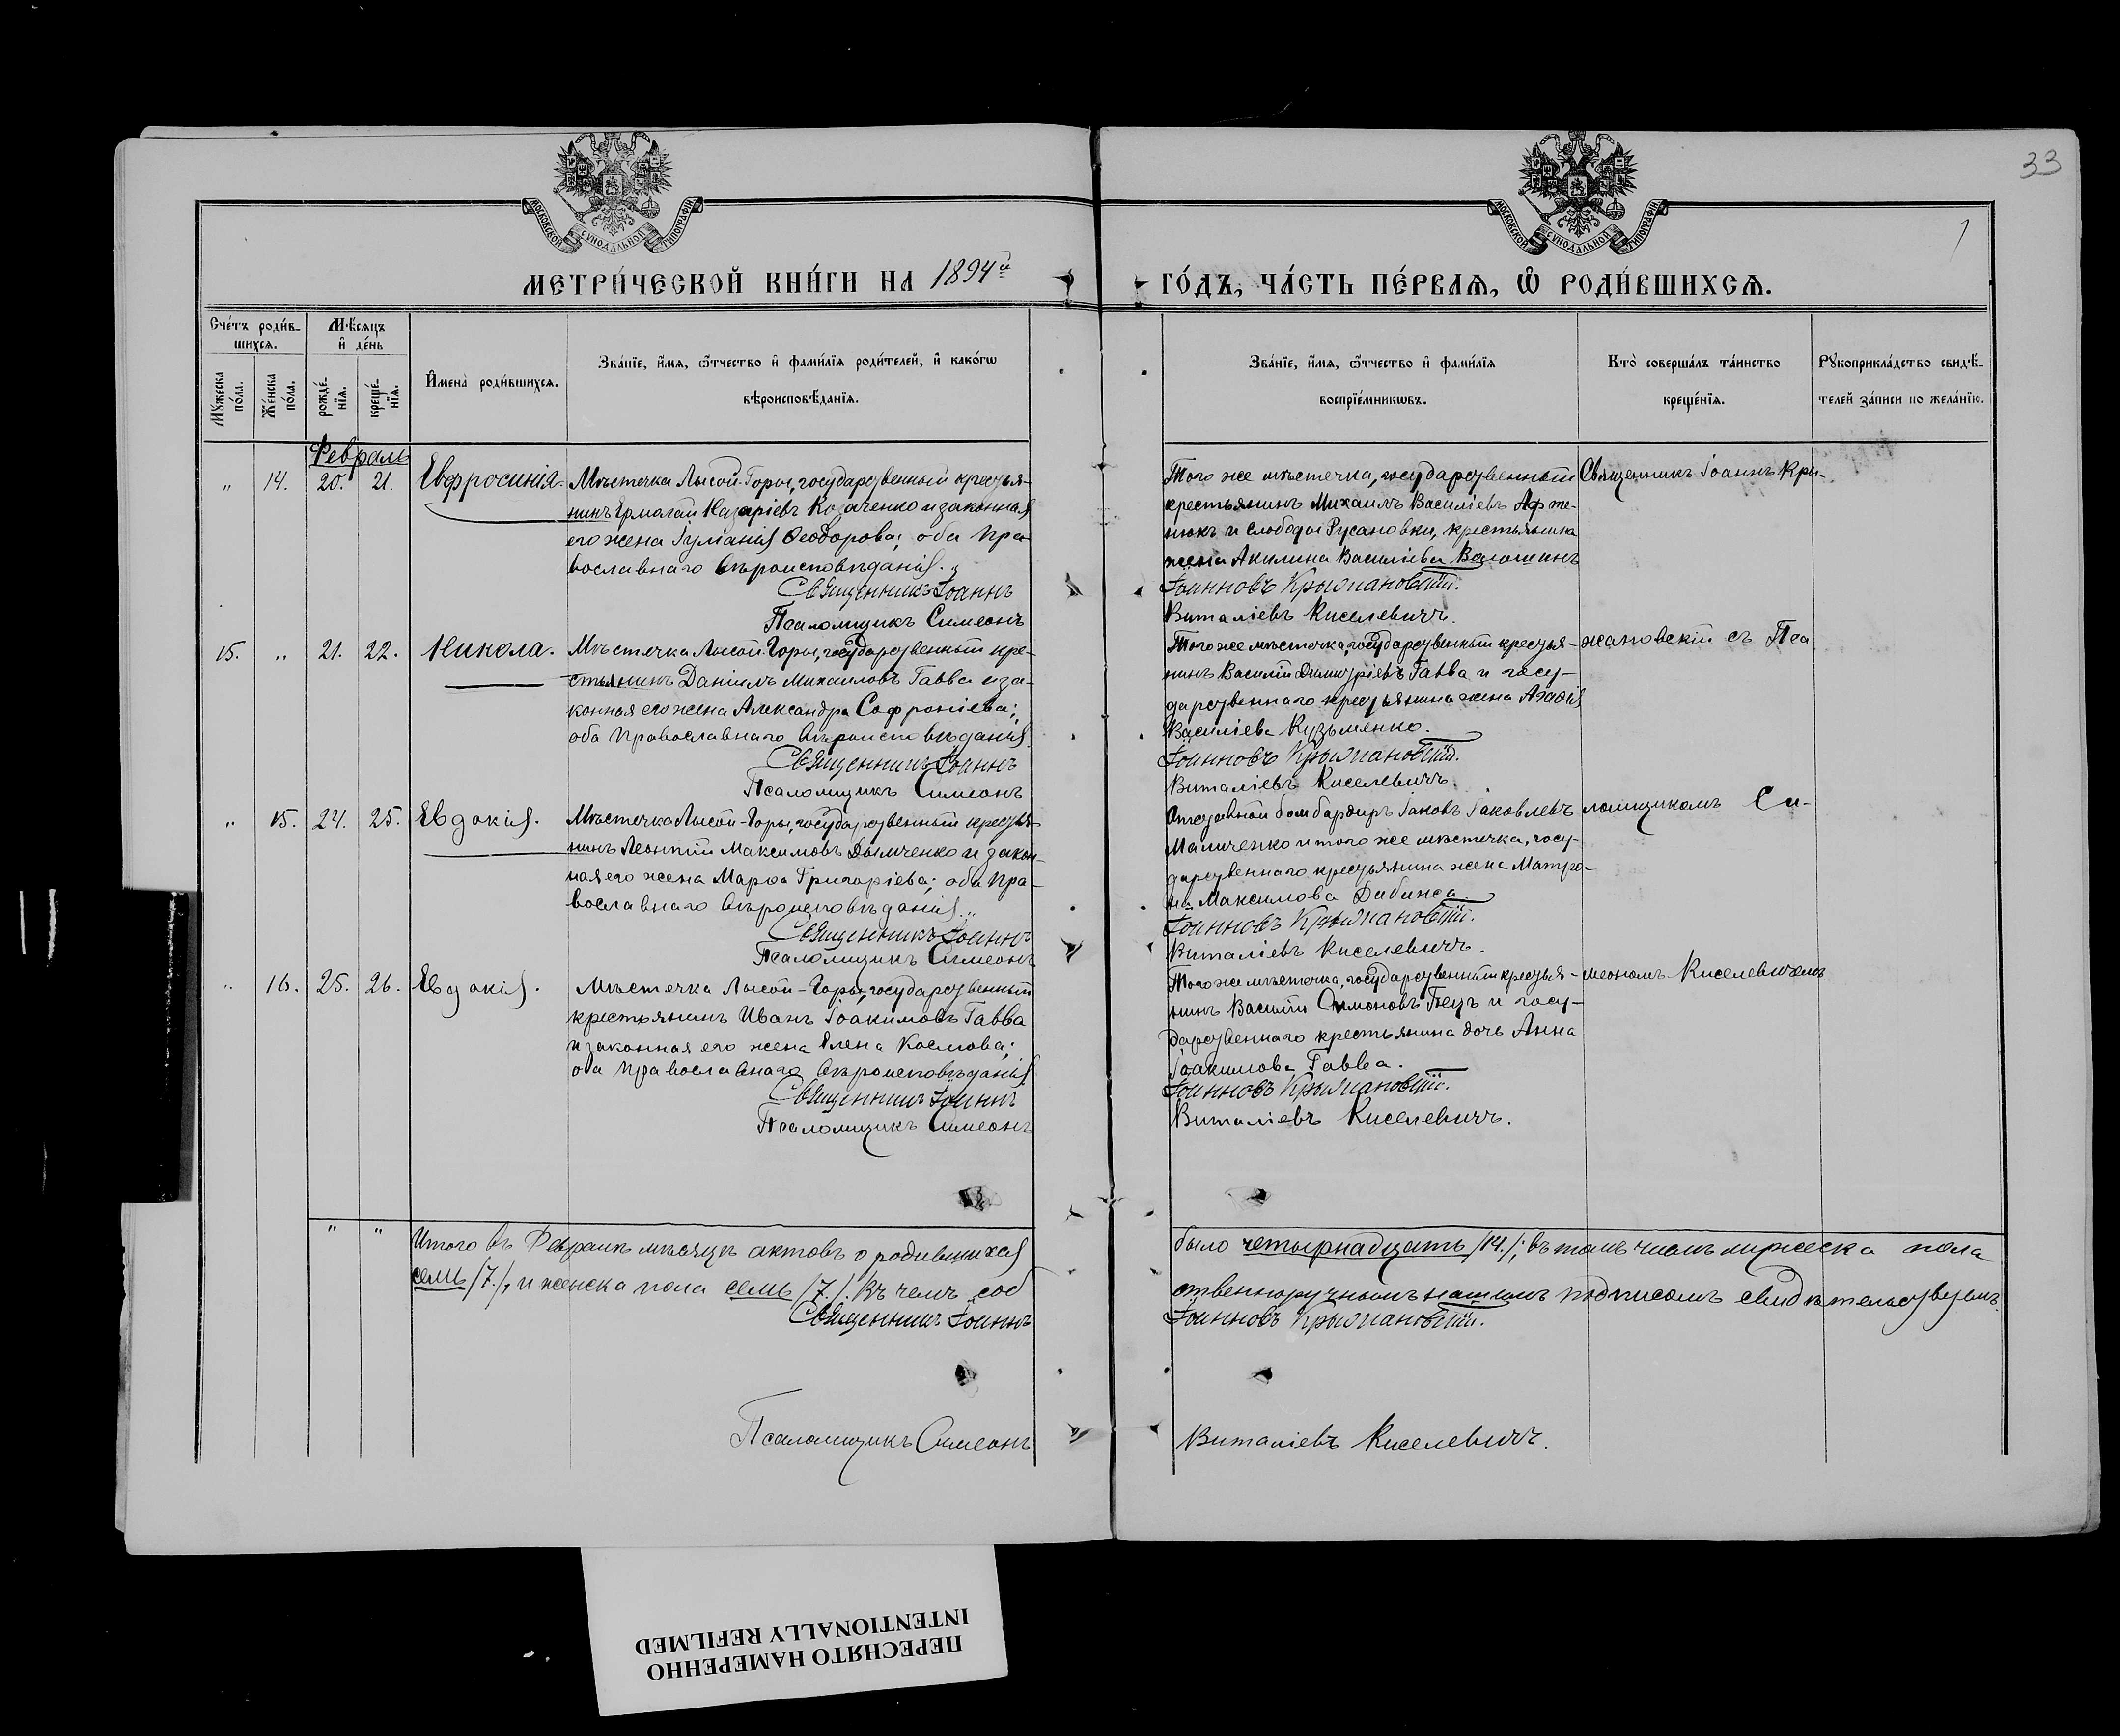 33
1
МОСКОВСКОЙ СУНОДАЛЬНОЙ ТИПОГРАФІИ
МОСКОВСКОЙ СУНОДАЛЬНОЙ ТИПОГРАФІИ
МЕТРИ́ЧЕСКОЙ КНИ́ГИ НА 1894й
ГО́ДЪ, ЧА́СТЬ ПЕ́РВАѦ, Ѡ҆ РОДИ́ВШИХСѦ.
Сче́тъ роди́в-
шихсѧ.
Мѣ́сѧцъ
и҆ де́нь
Мꙋ́жеска
по́ла.
Же́нска
по́ла.
рожде́-
нїѧ.
креще́-
нїѧ.
И҆мена̀ роди́вшихсѧ.
Зва́нїе, и҆́мѧ, ѻ҆́тчество и҆ фами́лїѧ роди́телей, и҆ како́гѡ
вѣроисповѣ́данїѧ.
Зва́нїе, и҆́мѧ, ѻ҆́тчество и҆ фами́лїѧ
воспрїе́мникѡвъ.
Кто̀ соверша́лъ та́инство
креще́нїѧ.
Рꙋкоприкла́дство свидѣ́-
телей за́писи по жела́нїю.
Февраль
" 14. 20. 21. Евфросинія.
Мѣстечка Лысой-Горы, государственный крестья-
нинъ Ермолай Назаріевъ Козаченко и законная
его жена Іуліанія Ѳеодорова; оба Пра-
вославнаго Вѣроисповѣданія.
Священникъ Іоаннъ
Псаломщикъ Симеонъ
Того же мѣстечка, государственный
крестьянинъ Михаилъ Василіевъ
и слободы Русановки, крестьянина
жена Акилина Василіева Волошинъ
Іоанновъ Крыжановскій.
Виталіевъ Киселевичъ.
Священникъ Іоаннъ Кры-
15. " 21. 22. Никола.
Мѣстечка Лысой-Горы, государственный кре-
стьянинъ Даніилъ Михаиловъ Гавва и за-
конная его жена Александра Софроніева;
оба Православнаго Вѣроисповѣданія.
Священникъ Іоаннъ
Псаломщикъ Симеонъ
Того же мѣстечка, государственный крестья-
нинъ Василій Димитріевъ Гавва и госу-
дарственнаго крестьянина жена Агафія
Василіева Кузьменко.
Іоанновъ Крыжановскій.
Виталіевъ Киселевичъ.
жановскій съ Пса
" 15. 24. 25. Евдокія.
Мѣстечка Лысой-Горы, государственный крестья-
нинъ Леонтій Максимовъ Дымченко и закон-
ная его жена Марѳа Григоріева; оба Пра-
вославнаго Вѣроисповѣданія.
Священникъ Іоаннъ
Псаломщикъ Симеонъ
Отставной бомбардиръ Іаковъ Іаковлевъ
Маличенко и того же мѣстечка, госу-
дарственнаго крестьянина жена Матро-
на Максимова
Іоанновъ Крыжановскій.
Виталіевъ Киселевичъ.
ломщикомъ Си-
" 16. 25. 26. Евдокія.
Мѣстечка Лысой-Горы, государственный
крестьянинъ Иванъ Іоакимовъ Гавва
и законная его жена Елена Космова;
оба Православнаго Вѣроисповѣданія.
Священникъ Іоаннъ
Псаломщикъ Симеонъ
Того же мѣстечка, государственный крестья-
нинъ Василій Симоновъ и госу-
дарственнаго крестьянина дочь Анна
Іоакимова Гавва.
Іоанновъ Крыжановскій.
Виталіевъ Киселевичъ.
меономъ Киселевичемъ
" "
Итого въ Февралѣ мѣсяцѣ актовъ о родившихся
было четырнадцать /14./; въ томъ числѣ мужеска пола
семь /7./, и женска пола семь /7./. Въ чемъ соб
ственноручнымъ нашимъ подписомъ свидѣтельствуемъ.
Священникъ Іоаннъ
Іоанновъ Крыжановскій.
Псаломщикъ Симеонъ
Виталіевъ Киселевичъ.
ПЕРЕСНЯТО НАМЕРЕННО
INTENTIONALLY REFILMED